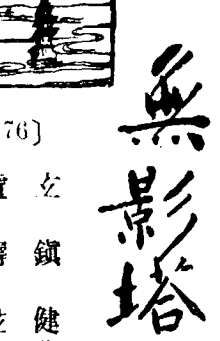 無影塔
76〕
玄鎭健